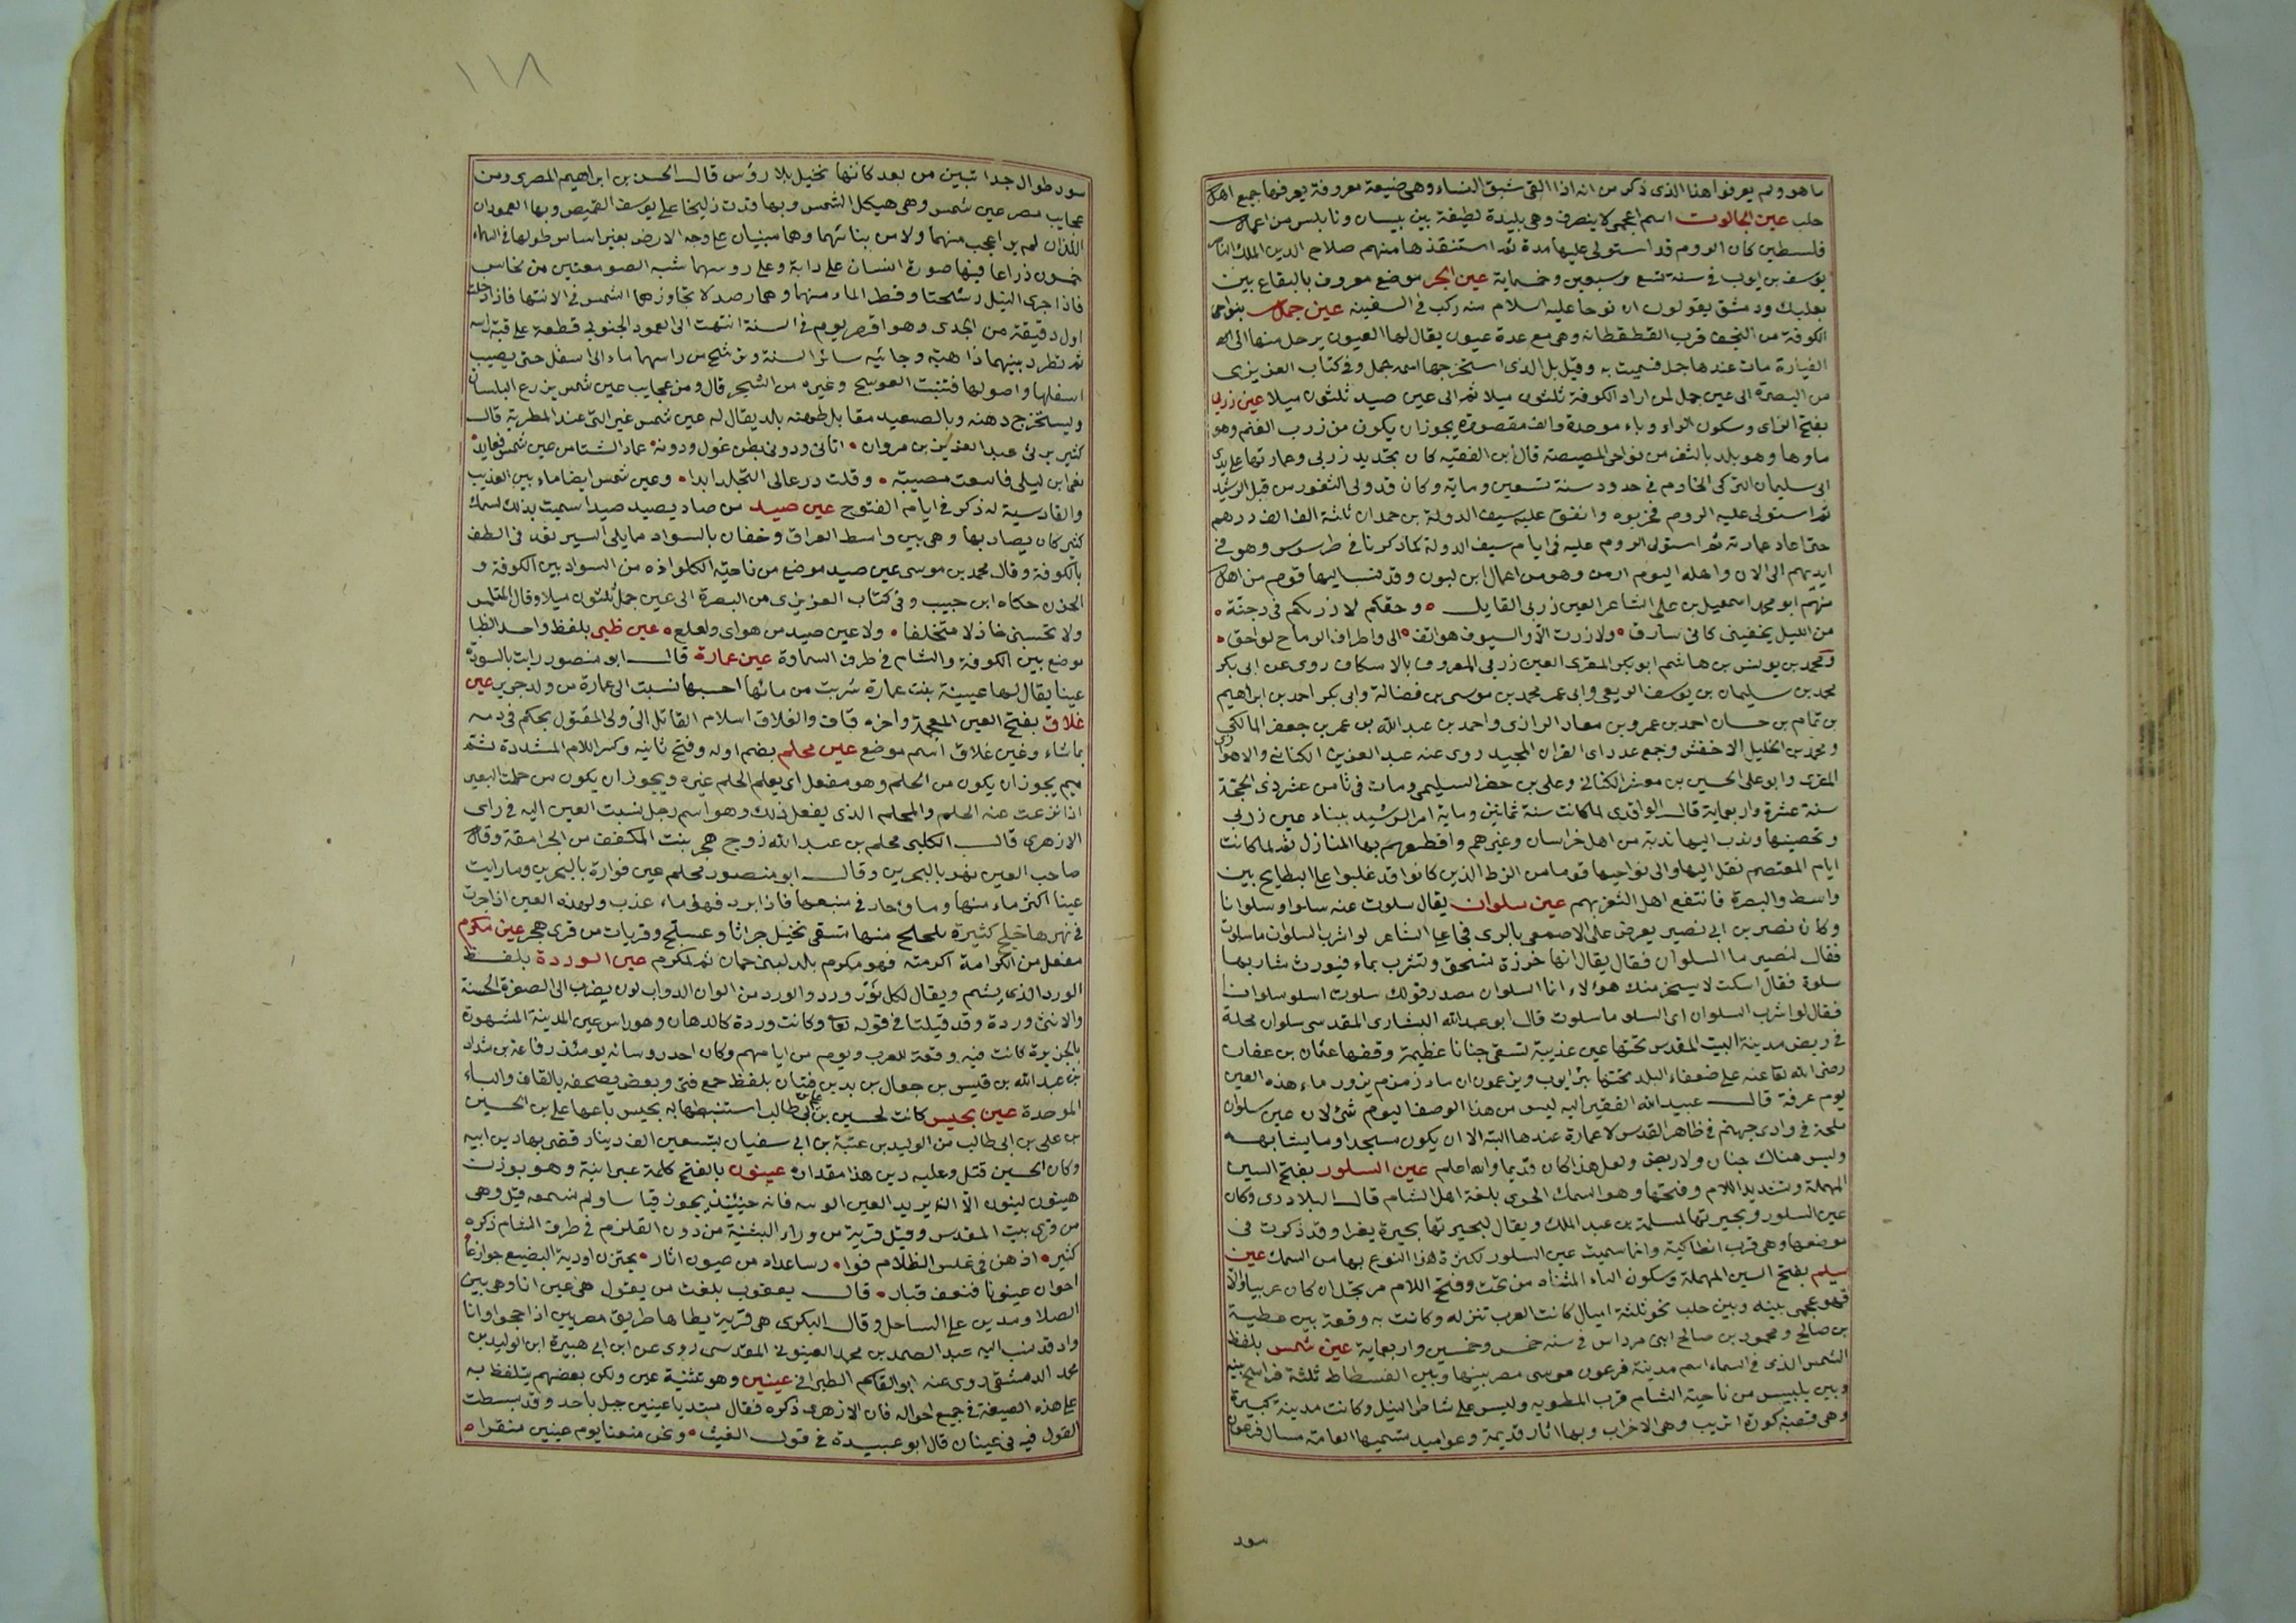 ما هو ولم يعرفوا هذا الذى ذكر من انه اذا القى شبق النساء وهى ضيعة معروفة يعرفها جميع اهل
حلب عين الجالوت اسم اعجمى لا ينصرف وهى بليدة لطيفة بين بيسان ونابلس من اعمال
فلسطين كان الروم قد استولى عليها مدة ثم استنقذها منهم صلاح الدين الملك الناصر
يوسف بن ايوب فى سنة تسع وسبعين وخمماية عين الجر موضع معروف بالبقاع بين
بعلبك ودمشق يقولون ان نوحا عليه السلام منه ركب فى السفينه عين جمل بنواحى
الكوفة من النجف قرب القطقطانه وهى مع عدة عيون يقال لها العيون يرحل منها الى
القيارة مات عندها جمل فسميت به وقيل بل الذى استخرجها اسمه جمل وفى كتاب العزيزى
من البصرة الى عين جمل لمن اراد الكوفة ثلثون ميلا ثم الى عين صيد ثلثون ميلا عين زربى
بفتح الزاى وسكون الراء وباء موحدة والف مقصورة يجوز ان يكون من زرب الغنم وهو
ماوها وهو بلد بالثغر من نواحى المصيصة قال ابن الفقيه كان تجديد زربى وعمارتها على يدى
ابى سليمان التركى الخادم فى حدود سنة تسعين وماية وكان قد ولى الثغور من قبل الرشيد
ثم استولى عليه الروم فخربوه وانفق عليه سيف الدولة بن حمدان ثلثة الف الف درهم
حتى اعاد عمارته ثم استولى الروم عليه فى ايام سيف الدولة كما ذكرنا فى طرسوس وهو فى
ايديهم الى الان واهله اليوم ارمن وهو من اعمال ابن ليون وقد نسب اليها قوم من اهل
منهم ابو محمد اسمعيل بن على الشاعر العين زربى القايل وحقكم لا زرتكم فى دجنّة
من الليل يخفينى كانى سارق ولا زرت الّا والسيوف هواتف الى واطراف الرماح لواحق
ومحمد بن يونس بن هاشم ابو بكر المقرى العين زربى المعروف بالاسكاف روى عن ابى بكر
محمد بن سليمان بن يوسف الربعى وابى عمر محمد بن موسى بن فضالة وابى بكر احمد بن ابراهيم
بن تمام بن حسان احمد بن عمرو بن معاد الرازى واحمد بن عبد الله بن عمر بن جعفر المالكى
ومحمد بن الخليل الاخفش وجمع عدد اى القران المجيد روى عنه عبد العزيز الكنانى والاهوازى
المقرى وابو على الحسين بن معشر الكنانى وعلى بن خضر السليمى ومات فى ثامن عشر ذى الحجّة
سنة عشرة واربعماية قال الواقدى لما كانت سنة ثمانين وماية امر الرشيد ببناء عين زربى
وتحصينها وندب اليها ندبة من اهل خراسان وغيرهم واقطعهم بها المنازل ثم لما كانت
ايام المعتصم نقل اليها والى نواحيها قوما من الزط الذين كانوا قد غلبوا على البطايح بين
واسط والبصرة فانتفع اهل الثغر بهم عين سلوان يقال سلوت عنه سلوا وسلوانا
وكان نصير بن ابى نصير يعرض على الاصمعى بالرى فجا على الشاعر لو اشرب السلوان ما سلوت
فقال لنصير ما السلوان فقال يقال انها خرزة تسحق وتشرب بماء فيورث شاربها
سلوة فقال اسكت لا يسخر منك هولاء انما السلوان مصدر قولك سلوت اسلو سلوانا
فقال لو اشرب السلوان اى السلو ما سلوت قال ابو عبد الله البشارى المقدسى سلوان محلة
فى ربض مدينة البيت المقدس تحتها عين عذيبة تسقى جنانا عظيمة وقفها عثمان بن عفان
رضى الله تعا عنه على ضعفاء البلد تحتها بئر ايوب ويزعمون ان ماء زمزم يزور ماء هذه العين
يوم عرفة قال عبيد الله الفقير اليه ليس من هذا الوصف اليوم شئ لان عين سلوان
محلة فى وادى جهنم فى ظاهر القدس لا عمارة عندها البتة الا ان يكون مسجدا وما يشابهه
وليس هناك جنان ولا ربض ولعل هذا كان قديما والله اعلم عين السلور بفتح السين
المهملة وتشديد اللام وفتحها وهو السمك الجرى بلغة اهل الشام قال البلاذرى وكان
عين السلور وبحيرتها لمسلمة بن عبد الملك ويقال لبحيرتها بحيرة يغرا وقد ذكرت فى
موضعها وهى قرب انطاكية وانما سميت عين السلور لكثرة هذا النوع بها من السمك عين
سيلم بفتح السين المهملة وسكون الياء المثناة من تحت وفتح اللام مرتجل ان كان عربيا والّا
فهو عجمى بينه وبين حلب نحو ثلثة اميال كانت العرب تنزله وكانت به وقعة بين عطية
بن صالح ومحمود بن صالح ابنى مرداس فى سنه خمس وخمسين واربعماية عين شمس بلفظ
الشمس الذى فى السماء اسم مدينة فرعون موسى مصر بينها وبين الفسطاط ثلثة فراسخ بينه
وبين بلبيس من ناحية الشام قرب المطريه وليس على شاطى النيل وكانت مدينة كبيرة
وهى قصبة كورة اتريب وهى الاخراب وبها اثار قديمة وعواميد تسميها العامة مسال فرعون
سود
١١٨
سود طوال جدا تبين من بعد كانها نخيل بلا رؤس قال الحسن بن ابراهيم المصرى ومن
عجايب مصر عين شمس وهى هيكل الشمس وبها قدت زليخا على يوسف القميص وبها العمودان
اللذان لم ير اعجب منهما ولا من بنائهما وهما مبنيان على وجه الارض بغير اساس طولها فى السماء
خمسون ذراعا فيها صورة انسان على دابة وعلى روسهما شبه الصومعتين من نحاس
فاذا جرى النيل رشحتا وقطر الماء منهما وهما رصد لا تجاوزهما الشمس فى الانتها فاذا دخلت
اول دقيقة من الجدى وهو اقصر يوم فى السنة انتهت الى العمود الجنوبى قطعة على قبة راسه
ثم تطرد بينهما ذاهبة وجائيه سائر السنة وترشح من راسهما ماء الى اسفل حتى يصيب
اسفلها واصولها فتنبت العوسج وغيره من الشجر قال ومن عجايب عين شمس يزرع البلسان
ويستخرج دهنه وبالصعيد مقابل طهنه بلد يقال له عين شمس غير التى عند المطرية قال
كثير يرثى عبد العزيز بن مروان اتانى ودونى بطن غول ودونه عماد الشبا من عين شمس فعابد
نعى ابن ليلى فاتبعت مصيبة وقلت درعا لى التجلد ابدا وعين شمس ايضا ماء بين العذيب
والقادسية له ذكر فى ايام الفتوح عين صيد من صاد يصيد صيدا سميت بذلك لسمك
كثير كان يصاد بها وهى بين واسط العراق وخفان بالسواد مما يلى السير تعد فى الطف
بالكوفة وقال محمد بن موسى عين صيد موضع من ناحية الكلواذه من السواد بين الكوفة و
الحزن حكاه ابن حبيب وفى كتاب العزيزى من البصرة الى عين جمل ثلثون ميلا وقال المتلمس
ولا تحسبنى خاذلا متخلفا ولا عين صيد من هواى ولعلع عين ظبى بلفظ واحد الظبا
موضع بين الكوفة والشام فى طرف السماوة عين عمارة قال ابو منصور رايت بالسودة
عينا يقال لها عيينة بنت عمارة شربت من مائها احسبها نسبت الى عمارة من ولد جرير عين
غلاق بفتح العين المعجمة واخره قاف والغلاق اسلام القاتل الى ولى المقتول يحكم فى دمه
بما شاء وعين غلاق اسم موضع عين محلم بضم اوله وفتح ثانيه وكسر اللام المشددة ثم
ميم يجوز ان يكون من الحلم وهو مفعل اى يعلم الحلم غيره ويجوز ان يكون من حلمت البعير
اذا نزعت عنه الحلم والمحلم الذى يفعل ذلك وهو اسم رجل نسبت العين اليه فى راى
الازهرى قال الكلبى محلم بن عبد الله زوج هجر بنت المكفف من الجرامقة وقال
صاحب العين نهر بالبحرين وقال ابو منصور محلم عين فوارة بالبحرين وما رايت
عينا اكثر ماء منها وماؤ حار فى منبعها فاذا برد فهو ماء عذب ولهذه العين اذا جرت
فى نهرها خلج كثيرة تتخلج منها تسقى نخيل جراثا وعسلج وقريات من قرى هجر عين مكرم
مفعل من الكرامة اكرمته فهو مكرم بلد لبنى حمان ثم لمكرم عين الوردة بلفظ
الورد الذى يشم ويقال لكل نور ورد والورد من الوان الدواب لون يضرب الى الصفرة الحسنة
والانثى وردة وقد قيلتا فى قوله تعا وكانت وردة كالدهان وهو راس عين المدينة المشهورة
بالجزيرة كانت فيه وقعة للعرب ويوم من ايامهم وكان احد روسائه يومئذ رفاعة بن شداد
بن عبد الله بن قيس بن جعال بن بد بن فتيان بلفظ جمع فتى وبعض يصحفه بالقاف والباء
الموحدة عين يحنس كانت لحسين بن على بن ابى طالب استنبطها به يحنس باعها على بن الحسين
بن على بن ابى طالب من الوليد بن عتبة بن ابى سفيان بتسعين الف دينار قضى بها دين ابيه
وكان الحسين قتل وعليه دين هذا مقداره عينون بالفتح كلمة عبرانية وهو بوزن
هينون لينون الّا انه يريد العين الوسه فانه حينئذ يجوز قياسا ولم نسمعه قيل وهى
من قرى بيت المقدس وقيل قرية من وراء البثنية من دون القلزم فى طرف الشام ذكره
كثير اذ هن فى غلس الظلام قوا رسا عداد من عيون اثار يجتزن اودية البضيع جوازعا
اجوان عينونا فنعف قبار قال يعقوب بلغت من يقول هى عين انا وهى بين
الصلا ومدين على الساحل وقال البكرى هى قرية يطاها طريق مصريين اذا حجوا وانا
واد قد نسب اليه عبد الصمد بن محمد العينونى المقدسى روى عن ابن ابى هبيرة ابن الوليد بن
محمد الدمشقى روى عنه ابو القاسم الطبرانى عينين وهو تثنية عين ولكن بعضهم يتلفظ به
على هذه الصيغة فى جميع احواله فان الازهرى ذكره فقال مبتديا عينين جبل باحد وقد بسطت
القول فيه فى عينان قال ابو عبيدة فى قول الغيث ونحن منعنا يوم عينين منقرا